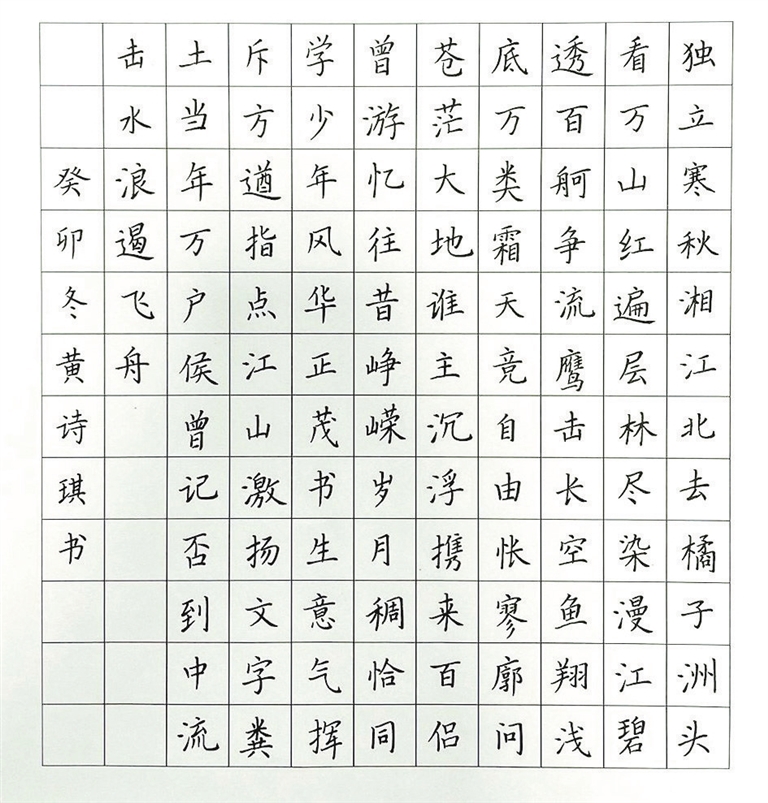 独立寒秋湘江北去橘子洲头
看万山红遍层林尽染漫江碧
透百舸争流鹰击长空鱼翔浅
底万类霜天竞自由怅寥廓问
苍茫大地谁主沉浮携来百侣
曾游忆往昔峥嵘岁月稠恰同
学少年风华正茂书生意气挥
斥方遒指点江山激扬文字粪
土当年万户侯曾记否到中流
击水浪遏飞舟
癸卯冬黄诗琪书